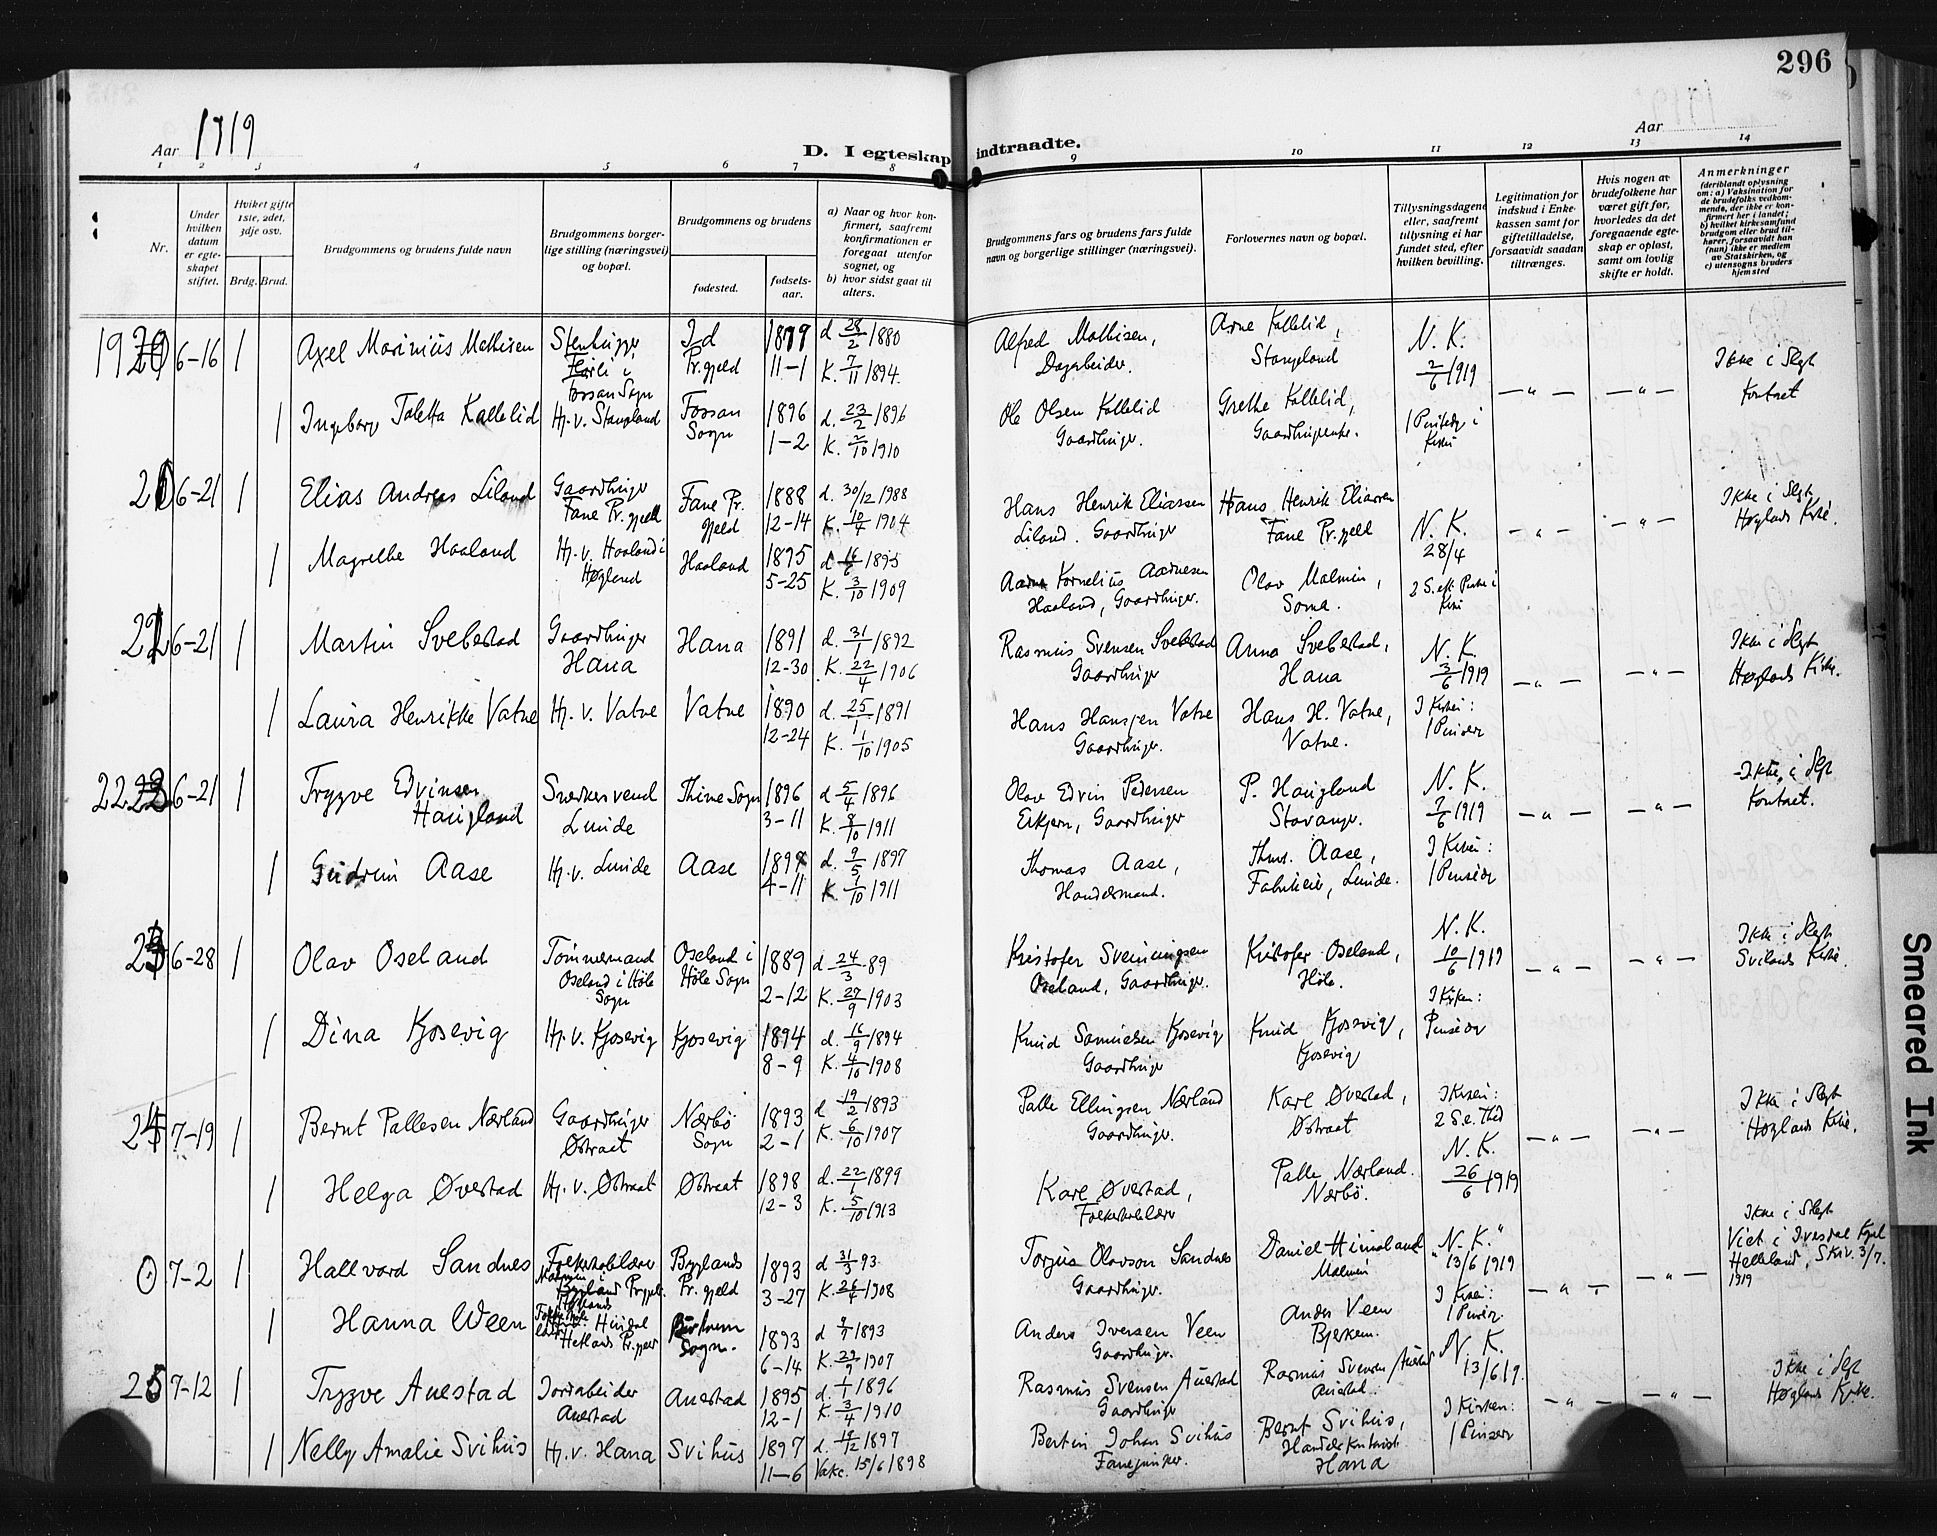 296
Aar 1919
Aar
D. I egteskap indtraadte.
1 2 3 4 5 6 7 8 9 10 11 12 13 14
Nr.
Under hvilken datum er egteskapet stiftet.
Hviket gifte 1ste, 2det, 3dje osv.
Brdg. Brud.
Brudgommens og brudens fulde navn
Brudgommens borgerlige stilling (næringsvei) og bopæl.
Brudgommens og brudens
fødested.
fødselsaar.
a) Naar og hvor konfirmert, saafremt konfirmationen er foregaat utenfor sognet, og
b) hvor sidst gaat til alters.
Brudgommens fars og brudens fars fulde navn og borgerlige stillinger (næringsvei).
Forlovernes navn og bopæl.
Tillysningsdagene eller, saafremt tillysning ei har fundet sted, efter hvilken bevilling.
Legitimation for indskud i Enkekassen samt for giftetilladelse, forsaavidt saadan tiltrænges.
Hvis nogen av brudefolkene har været gift før, hvorledes da det foregaaende egteskap er opløst, samt om lovlig skifte er holdt.
Anmerkninger
(deriblandt oplysning om: a) Vaksination for de brudefolks vedkommende, der ikke er konfirmert her i landet; b) hvilket kirkesamfund brudgom eller brud tilhører, forsaavidt han (hun) ikke er medlem av Statskirken, og c) utensogns bruders hjemsted
6-16 1 Axel Marinius Mathisen
Id Pr.gjeld
11-1
d. 28/2 1880
K. 7/11 1894.
Alfred Mathisen,
Dagarbeider.
Arne Kallelid,
Stangland
N. K.
2/6 1919
Ikke i Slegt
Kontoret
1 Ingeborg Toletta Kallelid
Hj. v. Stangland
Fossan Sogn
1896
1-2
d. 23/2 1896
K. 2/10 1910
Ole Olsen Kallelid
Gaardbruger.
Grethe Kallelid,
21 6-21 1 Elias Andreas Liland
Gaardbruger
Fane Pr.gjeld
Fane Pr.gjeld
1888
12-14
d. 30/12 1988
K. 10/4 1904
Hans Henrik Eliassen
Liland. Gaardbruger
Hans Henrik Eliassen
Fane Pr.gjeld
N. K.
28/4
Ikke i Slegt
Høylands Kirke.
1 Magrethe Haaland
Hj. v. Haaland i
Høyland
Haaland
1895
5-25
d. 16/6 1895
K. 3/10 1909
Kornelius Aadnesen
Haaland, Gaardbruger.
Olav Malmin,
Soma.
6-21 1 Martin Svebestad
Gaardbruger
Hana
Hana
1891
12-30
d. 31/1 1892
K. 22/4 1906
Rasmus Svensen Svebestad
Gaardbruger
Anna Svebestad,
Hana
N. K.
3/6 1919
Ikke i Slegt
Høylands Kirke.
1 Laura Henrikke Vatne
Hj. v. Vatne
Vatne
1890
12-24
d. 25/1 1891
K. 1/10 1905
Hans Hansen Vatne
Gaardbruger.
Hans H. Vatne,
Vatne.
I Kirken:
22 6-21 1 Trygve Edvinsen
Haugland
Snekkersvend
Lunde
Thime Sogn
1896
3-11
d. 5/4 1896
K. 8/10 1911
Olav Edvin Pedersen
Gaardbruger
P. Haugland
Stavanger.
N. K.
1919
Ikke i Slegt
Kontoret.
1 Gudrun Aase
Hj. v. Lunde
Aase
4-11
d. 9/5 1897
K. 1/10 1911
Thomas Aase,
Handelsmand.
Thms. Aase,
Lunde.
I Kirken:
6-28 1 Olav Oseland
Tømmermand
Oseland i Høle
Sogn
Oseland i
Høle Sogn
1889
2-12
d. 24/3 89
K. 27/9 1903
Kristofer Sveinungsen
Oseland, Gaardbruger.
Kristofer Oseland,
Høle.
N. K.
10/6 1919
I Kirken:
Ikke i Slegt
Svilands Kirke.
1 Dina Kjosevig
Hj. v. Kjosevig
Kjosevig
1894
8-9
d. 16/9 1894
K. 4/10 1908
Knud Samuelsen Kjosevig
Gaardbruger
Knud Kjosevig,
Kjosevig
24 7-19 1 Bernt Pallesen Nærland
Gaardbruger
Østraat
Nærbø
Sogn
1893
2-1
d. 19/2 1893
K. 6/10 1907
Palle Ellingsen Nærland
Gaardbruger.
Karl Øvestad,
Østraat
I Kirken:
N. K.
26/6 1919
Ikke i Slegt
Høylands Kirke.
1 Helga Øvestad
Hj. v. Østraat
Østraat
1898
12-3
d. 22/1 1899
K. 5/10 1913
Karl Øvestad,
Folkeskolelærer
Palle Nærland.
Nærbø.
0 7-2 1 Hallvard Sandnes
Folkeskolelærer
Byglands
Pr. gjeld
1893
3-27
d. 31/3 93
K. 26/4 1908
Torjus Olavson Sandnes
Gaardbruger.
Daniel Himeland
Malmin
N. K.
13/6 1919
Ikke i Slegt
Helleland, Skriv. 3/7.
1919
1 Hanna Ween
Hetlands Pr.gjeld
Sogn.
1893
6-14
1893
K. 29/9 1907
Anders Iversen Veen
Gaardbruger.
Anders Veen
Bjerkem.
I Kirken:
25 7-12 1 Trygve Auestad
Jordarbeider
Auestad
Auestad
1895
12-1
d. 1/1 1896
K. 3/4 1910
Rasmus Svensen Auestad
Gaardbruger
Rasmus Svensen Auestad
Auestad
N. K.
13/6 19.
Ikke i Slegt
Høylands Kirke.
1 Nelly Amalie Svihus
Hj. v. Hana
Svihus
1897
11-6
d. 19/12 1897
Vakc. 15/6 1898
Bertin Johan Svihus
Fanejunker.
Bernt Svihus,
Hana
I Kirken:
Smeared Ink